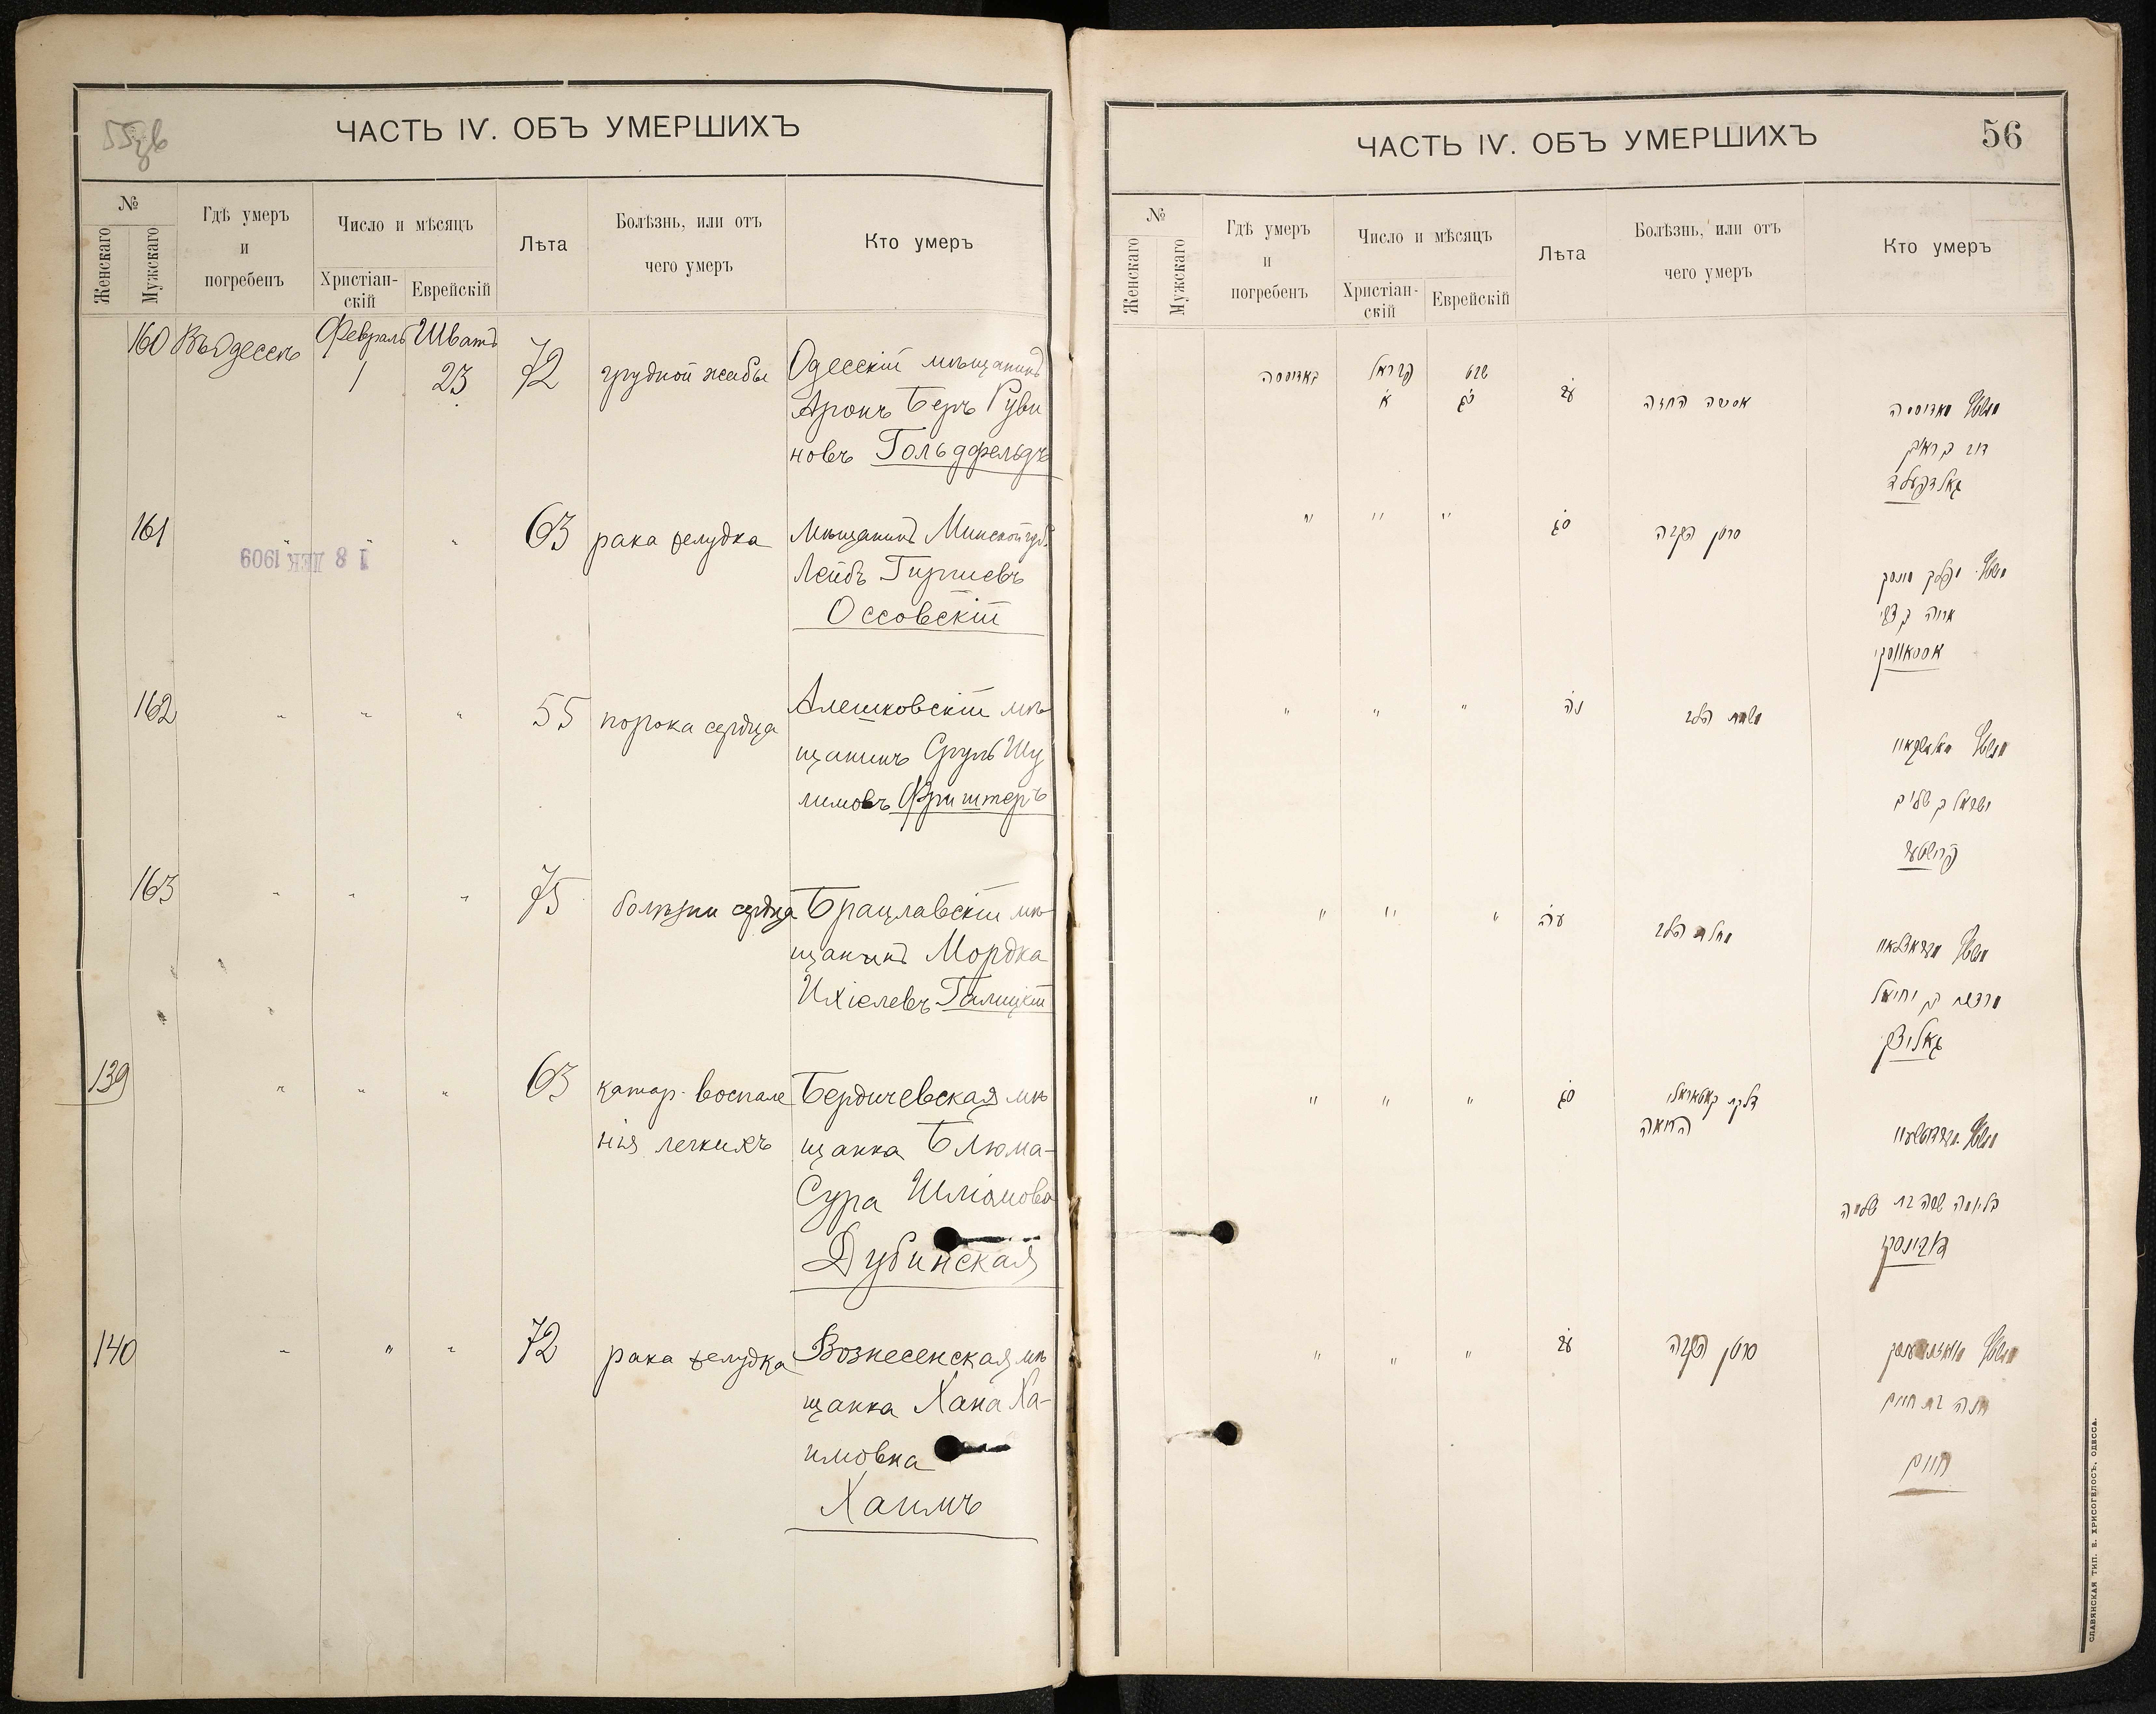 ЧАСТЬ IV. ОБЪ УМЕРШИХЪ
№
Женскаго
Мужскаго
Гдѣ умеръ
и
погребенъ
Число и мѣсяцъ
Христіан-
скій
Еврейскій
Лѣта
Болѣзнь, или отъ
чего умеръ
Кто умеръ
160 Въ Одессѣ Февраль Шватъ
1 23 72 грудной жабы Одесскій мѣщанинъ
Аронъ Беръ Руви
новъ Гольдфельдъ
161 " " " 63 рака желудка Мѣщанинъ Минской губ.
Лейбъ Гиршевъ
Оссовскій
18 ДЕК 1909
162 " " " 55 порока сердца Алешковскій мѣ
щанинъ Сруль Шу
лимовъ Фриштеръ
163 " " " 75 болѣзни сердца Брацлавскій мѣ
щанинъ Мордка
Ихіелевъ Галицкій
139 " " " 63 катар. воспале Бердичевская мѣ
нія легкихъ щанка Блюма-
Сура Шліомова
Дубинская
140 " " " 72 рака желудка Вознесенская мѣ
щанка Хана Ха-
имовна
Хаимъ
ЧАСТЬ IV. ОБЪ УМЕРШИХЪ
56
№
Женскаго
Мужскаго
Гдѣ умеръ
и
погребенъ
Число и мѣсяцъ
Христіан-
скій
Еврейскій
Лѣта
Болѣзнь, или отъ
чего умеръ
Кто умеръ
שבט
א כג עב
מאדיססה
גאלדפעלד
" " " סג סרטן הקבה
אססאווסקי
" " " נה
ישראל ב שלום
פרישטער
" " " עה מחלת הלב
מרדכי ב יחיאל
גאליצקי
" " " סג דלקת קאטאראלי
הריאה
בלומה שרה בת שלמה
דובינסקי
" " " עב סרטן הקבה
חנה בת חיים
חיים
СЛАВЯНСКАЯ ТИП. Е. ХРИСОГЕЛОСЪ, ОДЕССА.